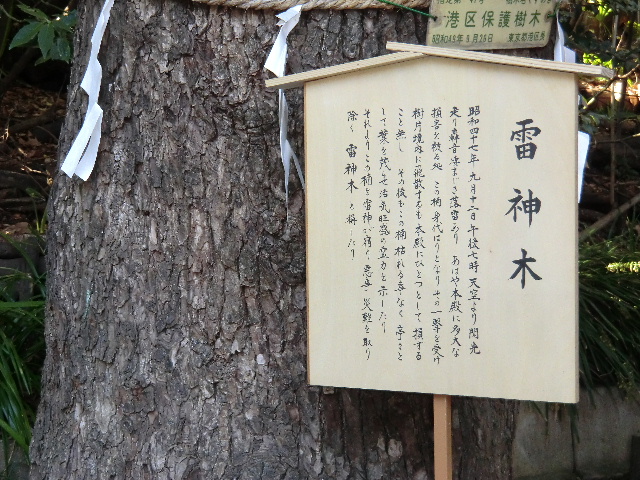 港区保護樹木
昭和49年8月26日 東京都港区長
雷神木
昭和四十七年 九月十二日 午後七時 天空より閃光
走り轟音凄まじき落雷あり あはや本殿に多大な
損害を被る処 この楠身代はりとなりその一撃を受け
樹片境内に飛散するも本殿にひとつとして損する
こと無し その後もこの楠枯れる事なく 亭々と
して葉を茂らせ活気旺盛の霊力を示したり
それよりこの楠を雷神が宿く 悪事 災難を取り
除く 雷神木 と称したり